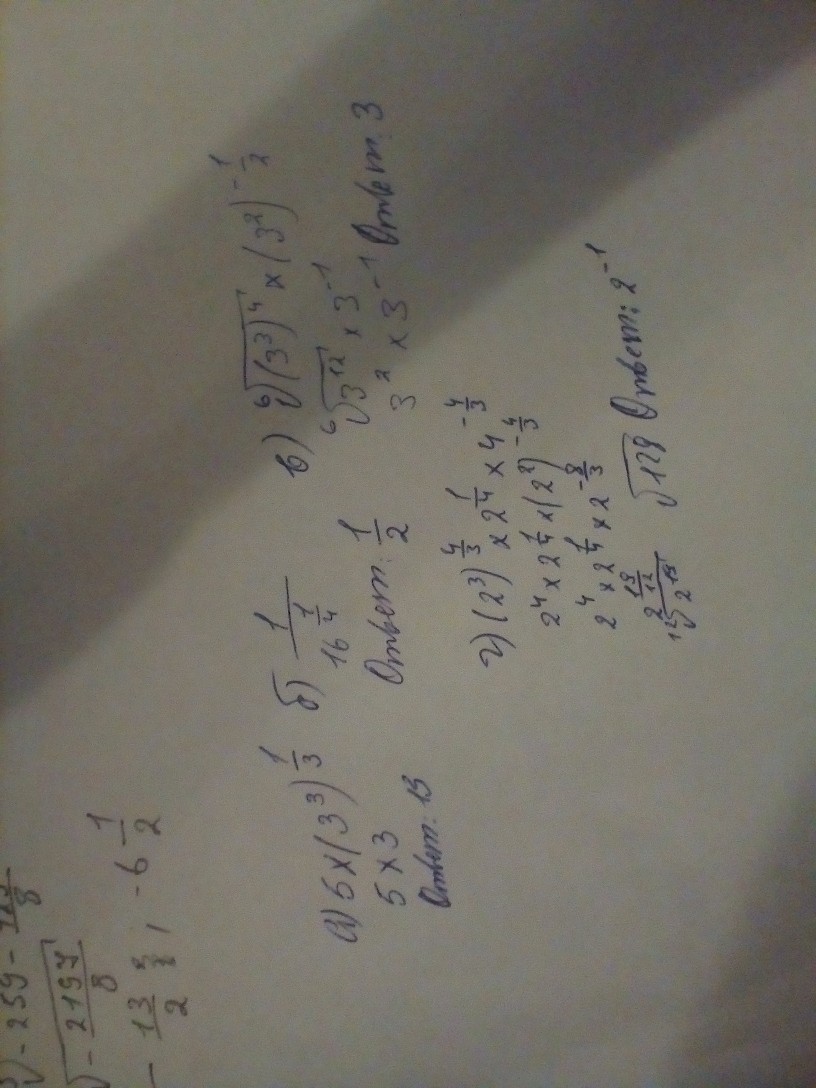 ∛-259 -
∛-2197/8
- 13/2 ; -6 1/2
а) 5 × (3³)^1/3
5 × 3
Ответ: 15
б) 1/16^1/4
Ответ: 1/2
в) ⁶√(3³)⁴ × (3²)^-1/2
⁶√3¹² × 3⁻¹
3² × 3⁻¹ Ответ: 3
г) (2³)^4/3 × 2^1/4 × 4^-4/3
2⁴ × 2^1/4 × (2²)^-4/3
2⁴ × 2^1/4 × 2^-8/3
2^19/12
¹²√2¹⁹ √128 Ответ: 2⁻¹